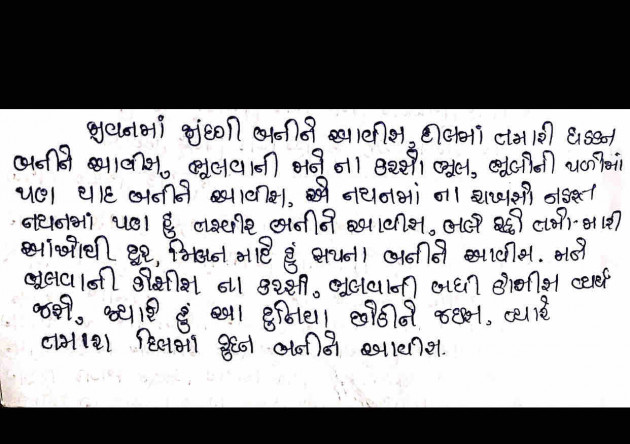 જીવનમાં જીંદગી બનીને આવીશ, દીલમાં તમારી ધડકન
બનીને આવીશ, ભૂલવાની મને ના કરશો ભૂલ, ભૂલોની પળોમાં
પણ યાદ બનીને આવીશ, એ નયનમાં ના રાખશો નફરત
નયનમાં પણ હું તસ્વીર બનીને આવીશ, ભલે રહો તમે મારી
આંખોથી દૂર, મિલન માટે હું સપના બનીને આવીશ. મને
ભૂલવાની કોશીશ ના કરશો, ભૂલવાની બધી કોશીશ વ્યર્થ
જશે, જ્યારે હું આ દુનિયા છોડીને જઇશ, ત્યારે
તમારા દિલમાં રુદન બનીને આવીશ.